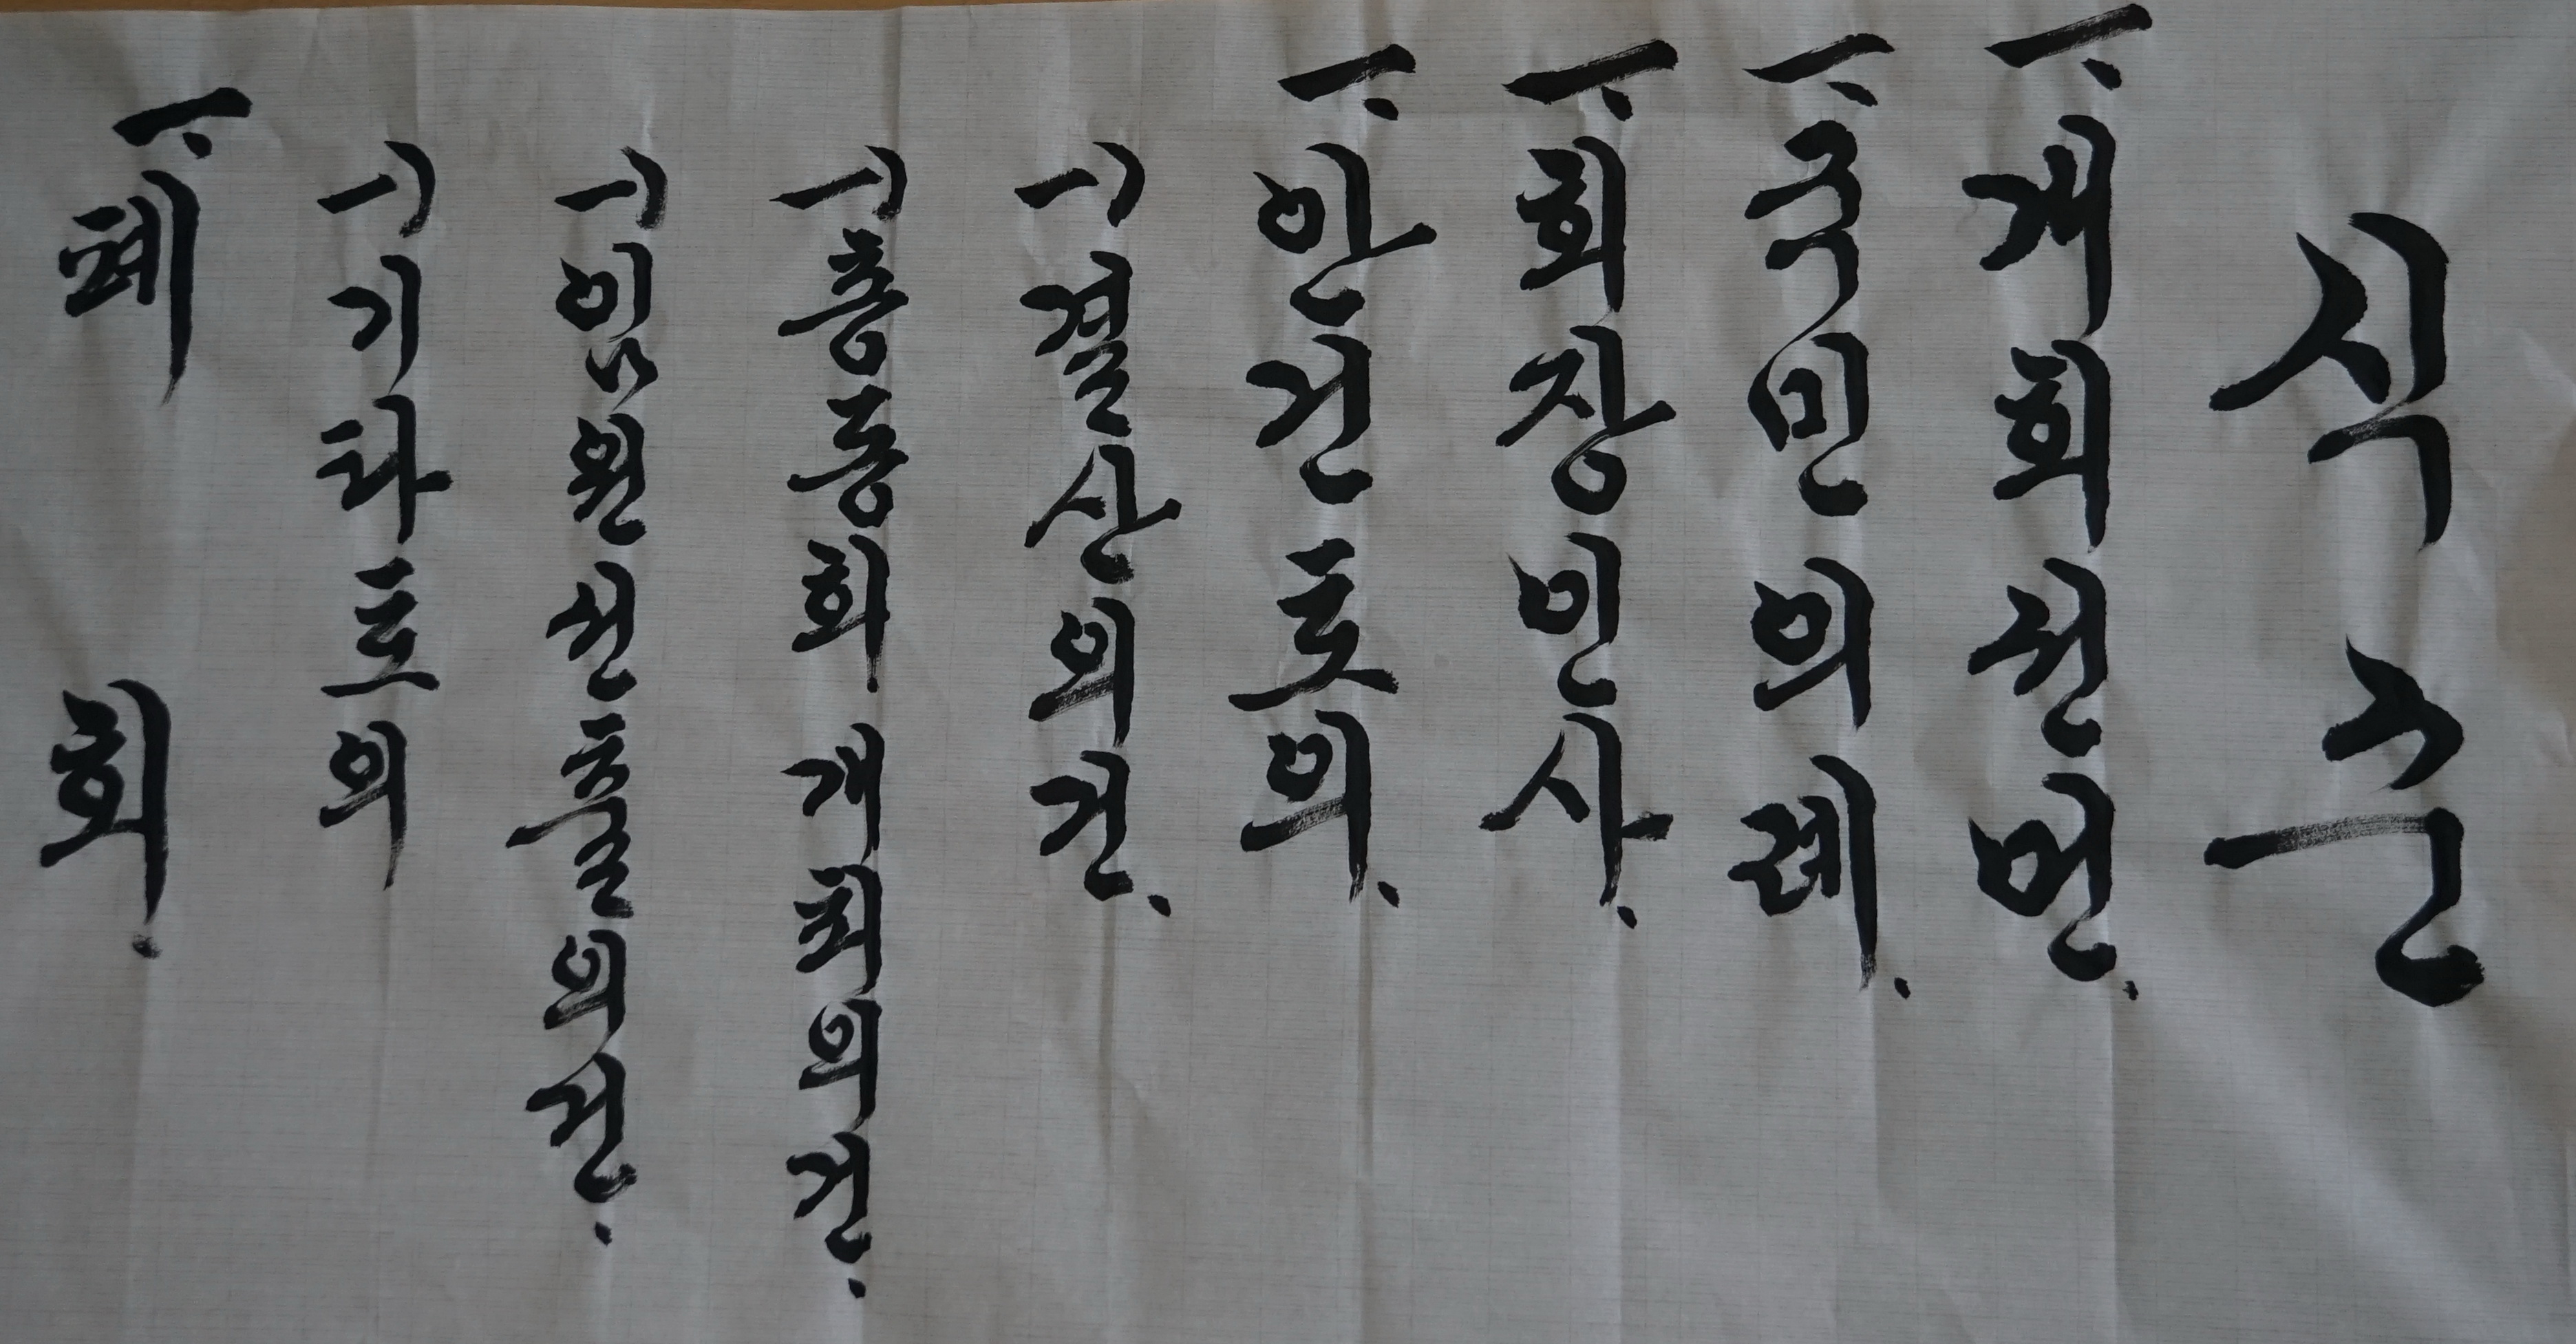 식순
一. 개회선언.
一. 국민의례.
一. 회장인사.
一. 안건토의.
一) 결산의건.
一) 개최의건.
一) 임원선출의건.
一) 기타토의
一. 폐회.